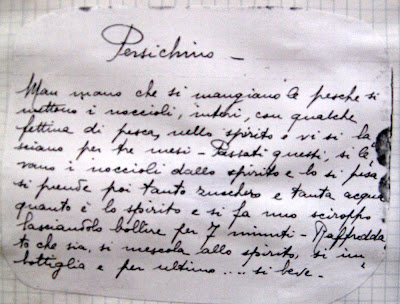 Persichino -
Man mano che si mangiano le pesche si
mettono i noccioli, interi, con qualche
fettina di pesca, nello spirito e vi si la
sciano per tre mesi - Passati questi, si le
vano i noccioli dallo spirito e lo si pesa
si prende poi tanto zucchero e tanta acqua
quanto è lo spirito e si fa uno sciroppo
lasciandolo bollire per 7 minuti - Raffredda
to che sia, si mescola allo spirito, si im
bottiglia e per ultimo .... si beve -